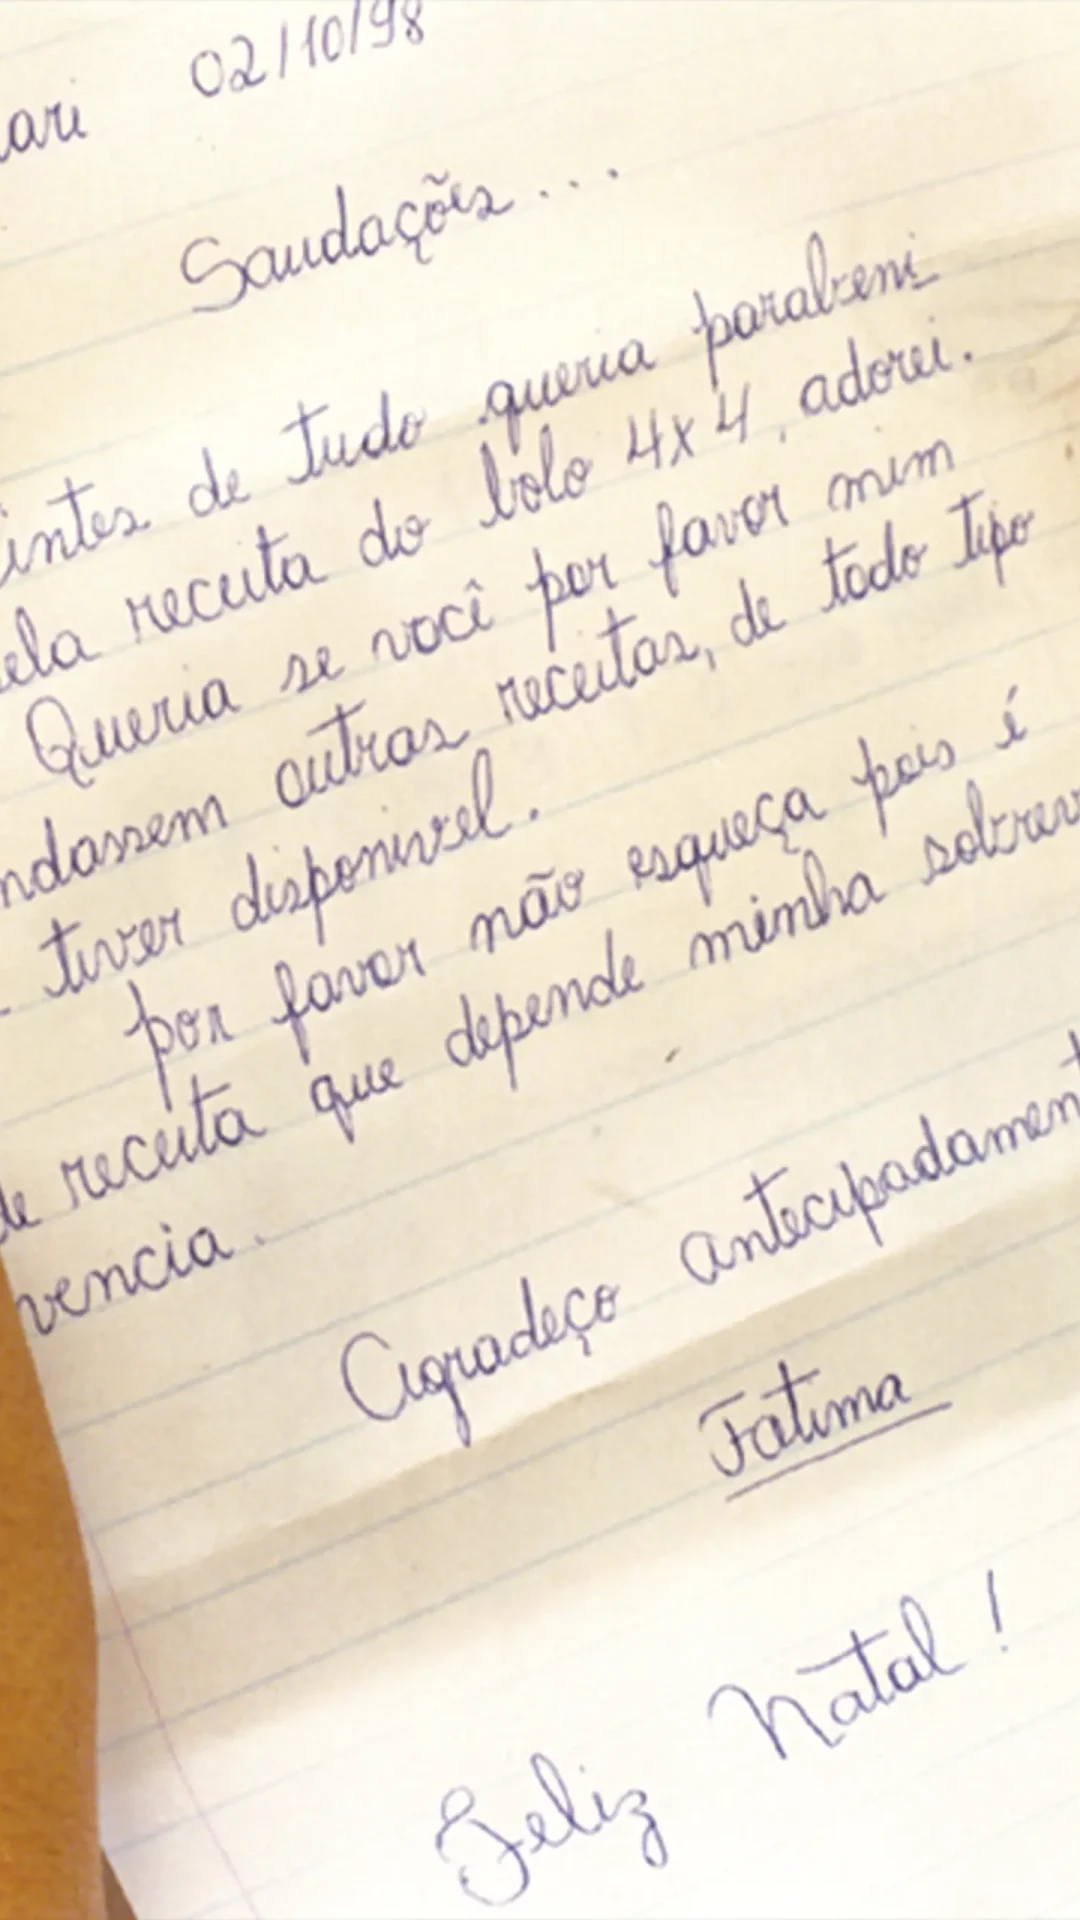 ari 02/10/98
Saudações...
Antes de tudo queria parabeni
ela receita do bolo 4x4, adorei.
Queria se você por favor mim
ndassem outras receitas, de todo tipo
tiver disponivel.
por favor não esqueça pois é
de receita que depende minha sobrevi
vencia.
Agradeço antecipadament
Fatima
Feliz Natal!